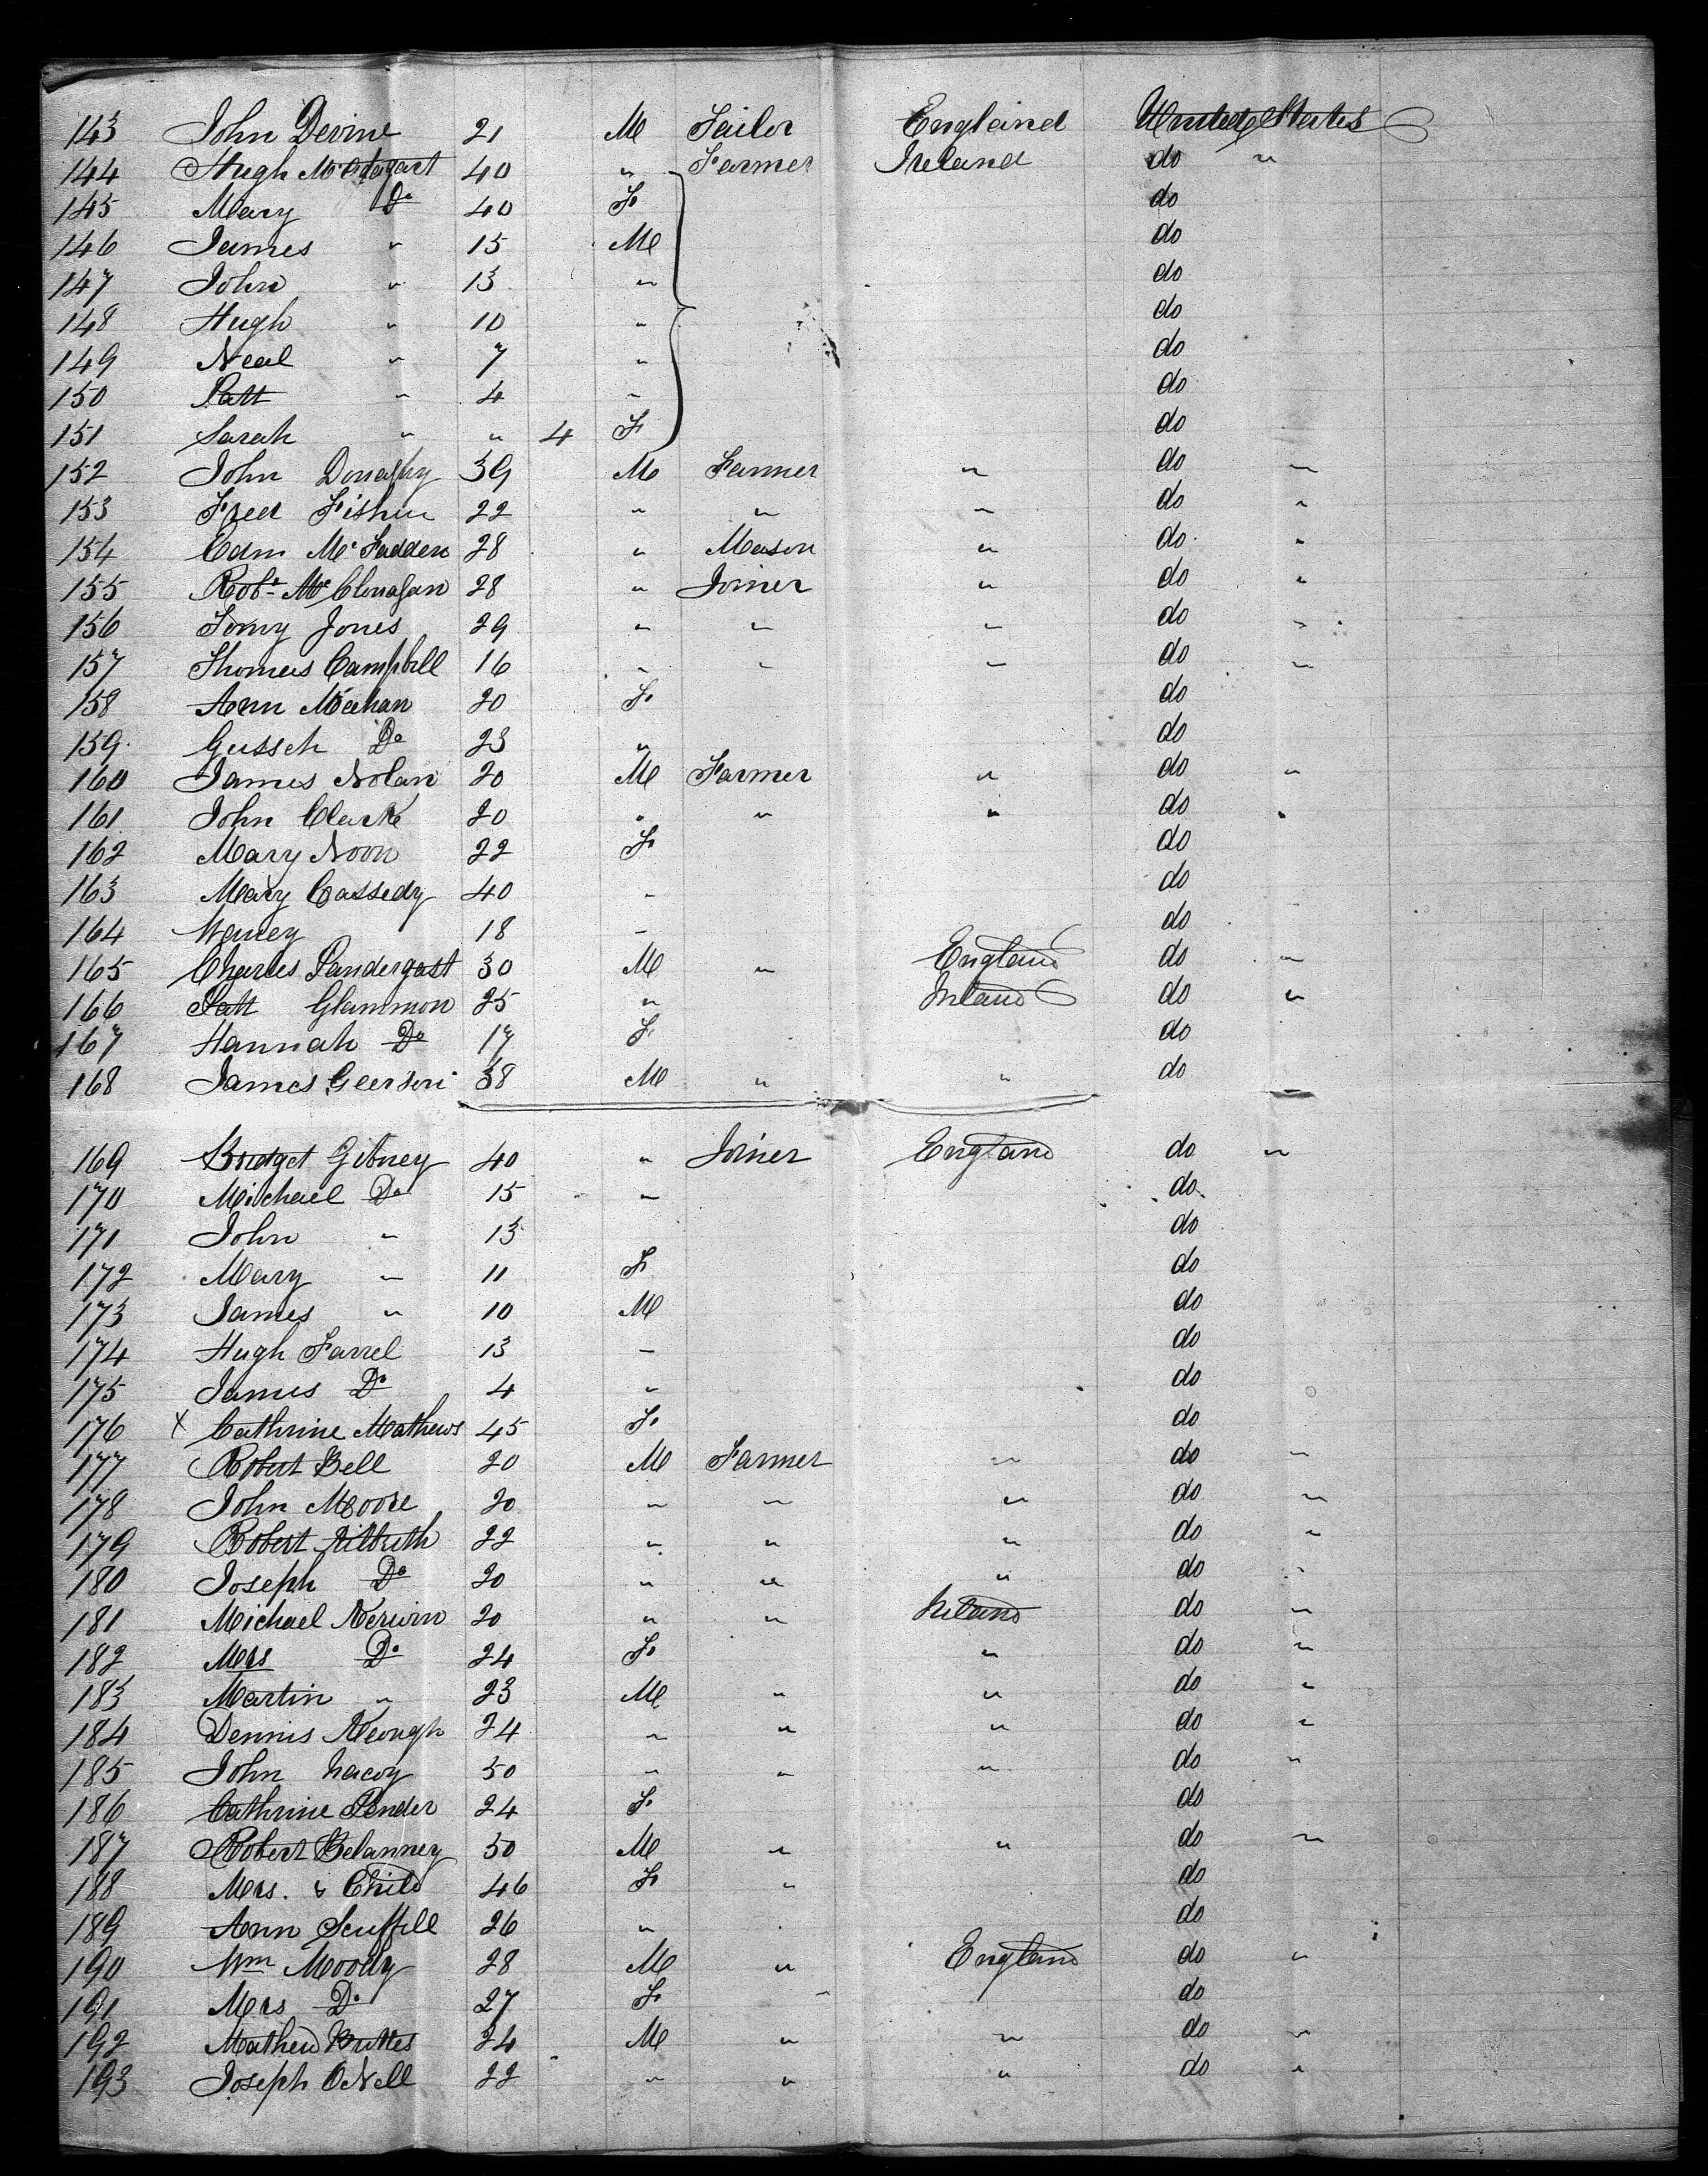 143 John Devine 21 M Tailor England United States
144 Hugh McTagart 40 " Farmer Ireland do "
145 Mary Do 40 F do
146 James " 15 M do
147 John " 13 " do
148 Hugh " 10 " do
149 Neal " 7 " do
150 Patt " 4 " do
151 Sarah " " 4 F do
152 John Donaghy 39 M Farmer " do "
153 Fred 22 " " " do "
154 Edm McFadden 28 " Mason " do "
155 Robt McClenagan 28 " Joiner " do "
156 Tomy Jones 29 " " " do "
157 Thomas Campbell 16 " " " do "
158 Ann Meehan 20 F do
159 Do 23 " do
160 James Nolan 20 M Farmer " do "
161 John Clark 20 " " " do "
162 Mary Noon 22 F do
163 Mary Cassedy 40 " do
164 18 " do
165 Charles Pandergast 30 M " England do "
166 Patt Glammon 25 " Ireland do "
167 Hannah Do 17 F do
168 James 38 M " " do "
169 Bridget Gibney 40 " Joiner England do "
170 Michael Do 15 " do
171 John " 13 do
172 Mary " 11 F do
173 James " 10 M do
174 Hugh Farrel 13 " do
175 James Do 4 " do
176 X Cathrine Mathews 45 F do
177 Robert Bell 20 M Farmer " do "
178 John Moore 20 " " " do "
179 Robert 22 " " " do "
180 Joseph Do 20 " " " do "
181 Michael Kerwin 20 " " Ireland do "
182 Mrs Do 24 F " do "
183 Martin " 23 M " " do "
184 Dennis Keough 24 " " " do "
185 John 50 " " " do "
186 Cathrine Pender 24 F do
187 Robert Belanney 50 M " " do "
188 Mrs. & Child 46 F " do
189 Ann 26 " do
190 Wm Moody 28 M " England do "
191 Mrs Do 27 F " do
192 Mathew 24 M " " do "
193 Joseph ONell 22 " " " do "